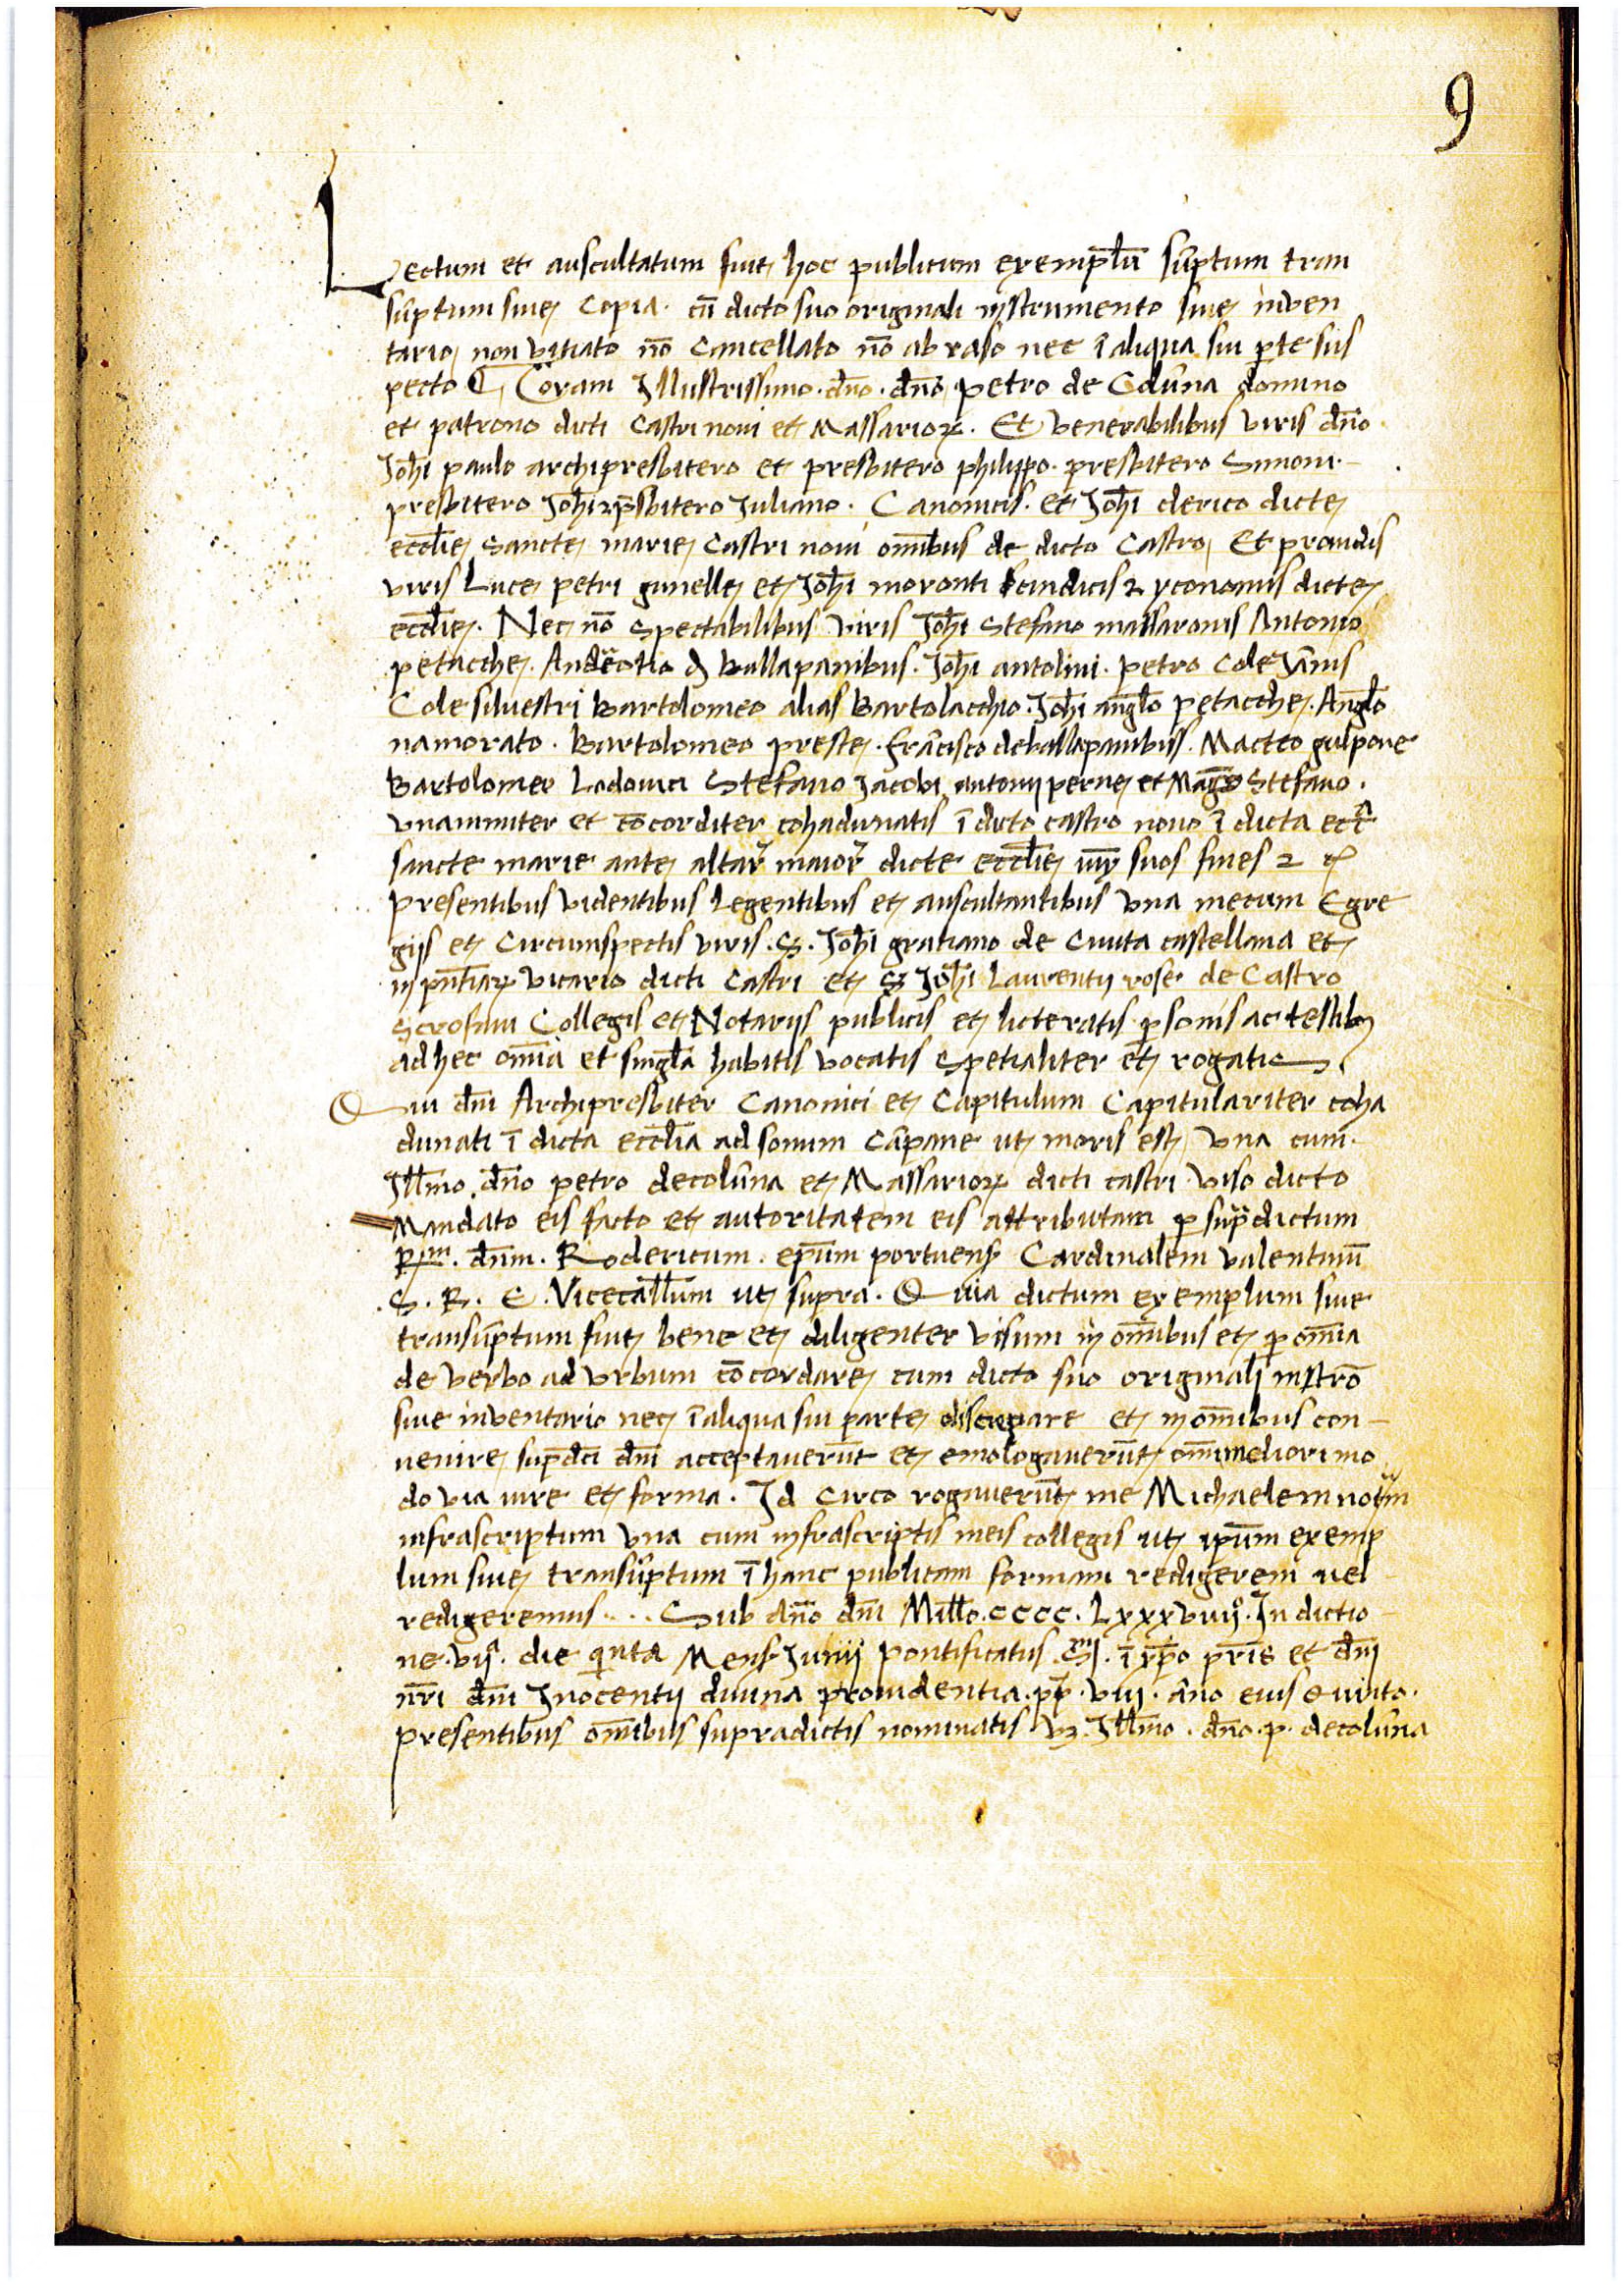 9
Lectum et auscultatum fuit hoc publicum exempl̄u sūptum tran
sūptum sive copia. cū dicto suo originali instrumento sive inven
tario non vitiato nō cancellato nō abraso nec ī aliqua sui p̱te sus
pecto Coram Illustrissimo. dn̄o. dn̄o petro de Colūna domino
et patrono dicti Castri novi et Massarioꝝ. Et venerabilibus viris dn̄o
Joh̄i paulo archipresbitero et presbitero philippo. presbitero Simoni
presbitero Joh̄i p̄sbitero Juliano. Canonicis. et Joh̄i clerico dicte
eccl̄ie Sancte marie Castri novi om̄ibus de dicto Castro Et providis
viris Luce petri et Joh̄i moronti sindicis ⁊ yconomis dicte
eccl̄ie. Nec nō Spectabilibus viris Joh̄i Stefano massaronis Antonio
petacche. Andreotio ḏ Ballapanibus. Joh̄i antolini. petro Cole Jānis
Cole silvestri Bartolomeo alias Bartolacchio. Joh̄i angl̄o petacche. Angl̄o
namorato. Bartolomeo preste. Frācisco de ballapanibus. Macteo gulpone
Bartolomeo Lodovici Stefano Jacobi antonii perne et Mag̅ro Stefano.
unanimiter et cōcorditer cohadunatis ī dicto castro novo ī dicta eccᵃ
sancte marie ante altar̄ maior̄ dicte eccl̄ie iux̱ suos fines ⁊ c̱
presentibus videntibus legentibus et auscultantibus una mecum Egre
giis et Circumspectis viris. S. Joh̄i gratiano de Civita castellana et
in pn̄tiaꝝ vicario dicti Castri et S Joh̄i Laurentii rose de Castro
Scrofani Collegis et Notariis publicis et licteratis ꝑsonis ac testibꝫ
ad hec om̄ia et singl̄a habitis vocatis spetialiter et rogatis
Qui dn̄i Archipresbiter Canonici et Capitulum Capitulariter coha
dunati ī dicta eccl̄ia ad sonum cāpane ut moris est una cum
Ill̄mo. dn̄o petro de colūna et Massarioꝝ dicti castri viso dicto
Mandato eis facto et autoritatem eis attributam ꝑ sup̄dictum
R̄m. dn̄m. Rodericum. ep̄um portuens̱ Cardinalem valentinū
S. R. E. Vicecall̄um ut supra. Quia dictum exemplum sive
transūptum fuit bene et diligenter visum in om̄ibus et ꝑ om̄ia
de verbo ad vrbum cōcordare cum dicto suo originali instrō
sive inventario nec ī aliqua sui parte discrepare et in om̄ibus con
venire sup̄dc̄i dn̄i acceptaverūt et emologaverūt om̄i meliori mo
do via iure et forma. Id circo rogaverūt me Michaelem not̄m
infrascriptum una cum infrascriptis meis collegis ut ip̄um exemp
lum sive transūptum ī hanc publicam formam redigerem vel
redigeremus... Sub ān̄o dn̄i Mill̄o. cccc. Lxxxviiijº. Indictio
ne. vijᵃ. die q̇nta Mens̱ Junij pontificatus. S.mi. ī xp̄o pr̄is et dn̄i
nr̄i dn̄i Inocentii divina providentia. pp̄. viij. āno eius Quinto.
presentibus om̄ibus supradictis nominatis vꝫ. Ill̄mo. dn̄o. p. de colūna